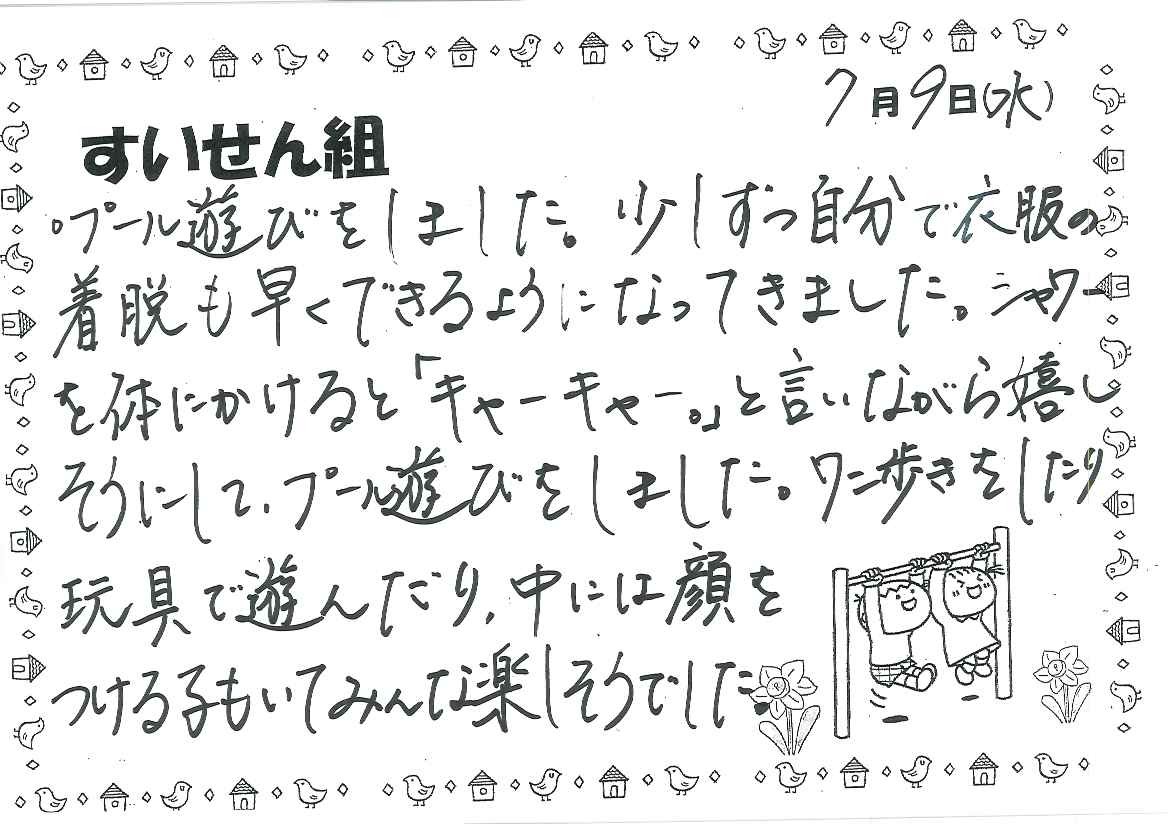 7月9日(水)
すいせん組
・プール遊びをしました。少しずつ自分で衣服の
着脱も早くできるようになってきました。シャワー
を体にかけると「キャーキャー。」と言いながら嬉し
そうにして、プール遊びをしました。ワニ歩きをしたり
玩具で遊んだり、中には顔を
つける子もいてみんな楽しそうでした。